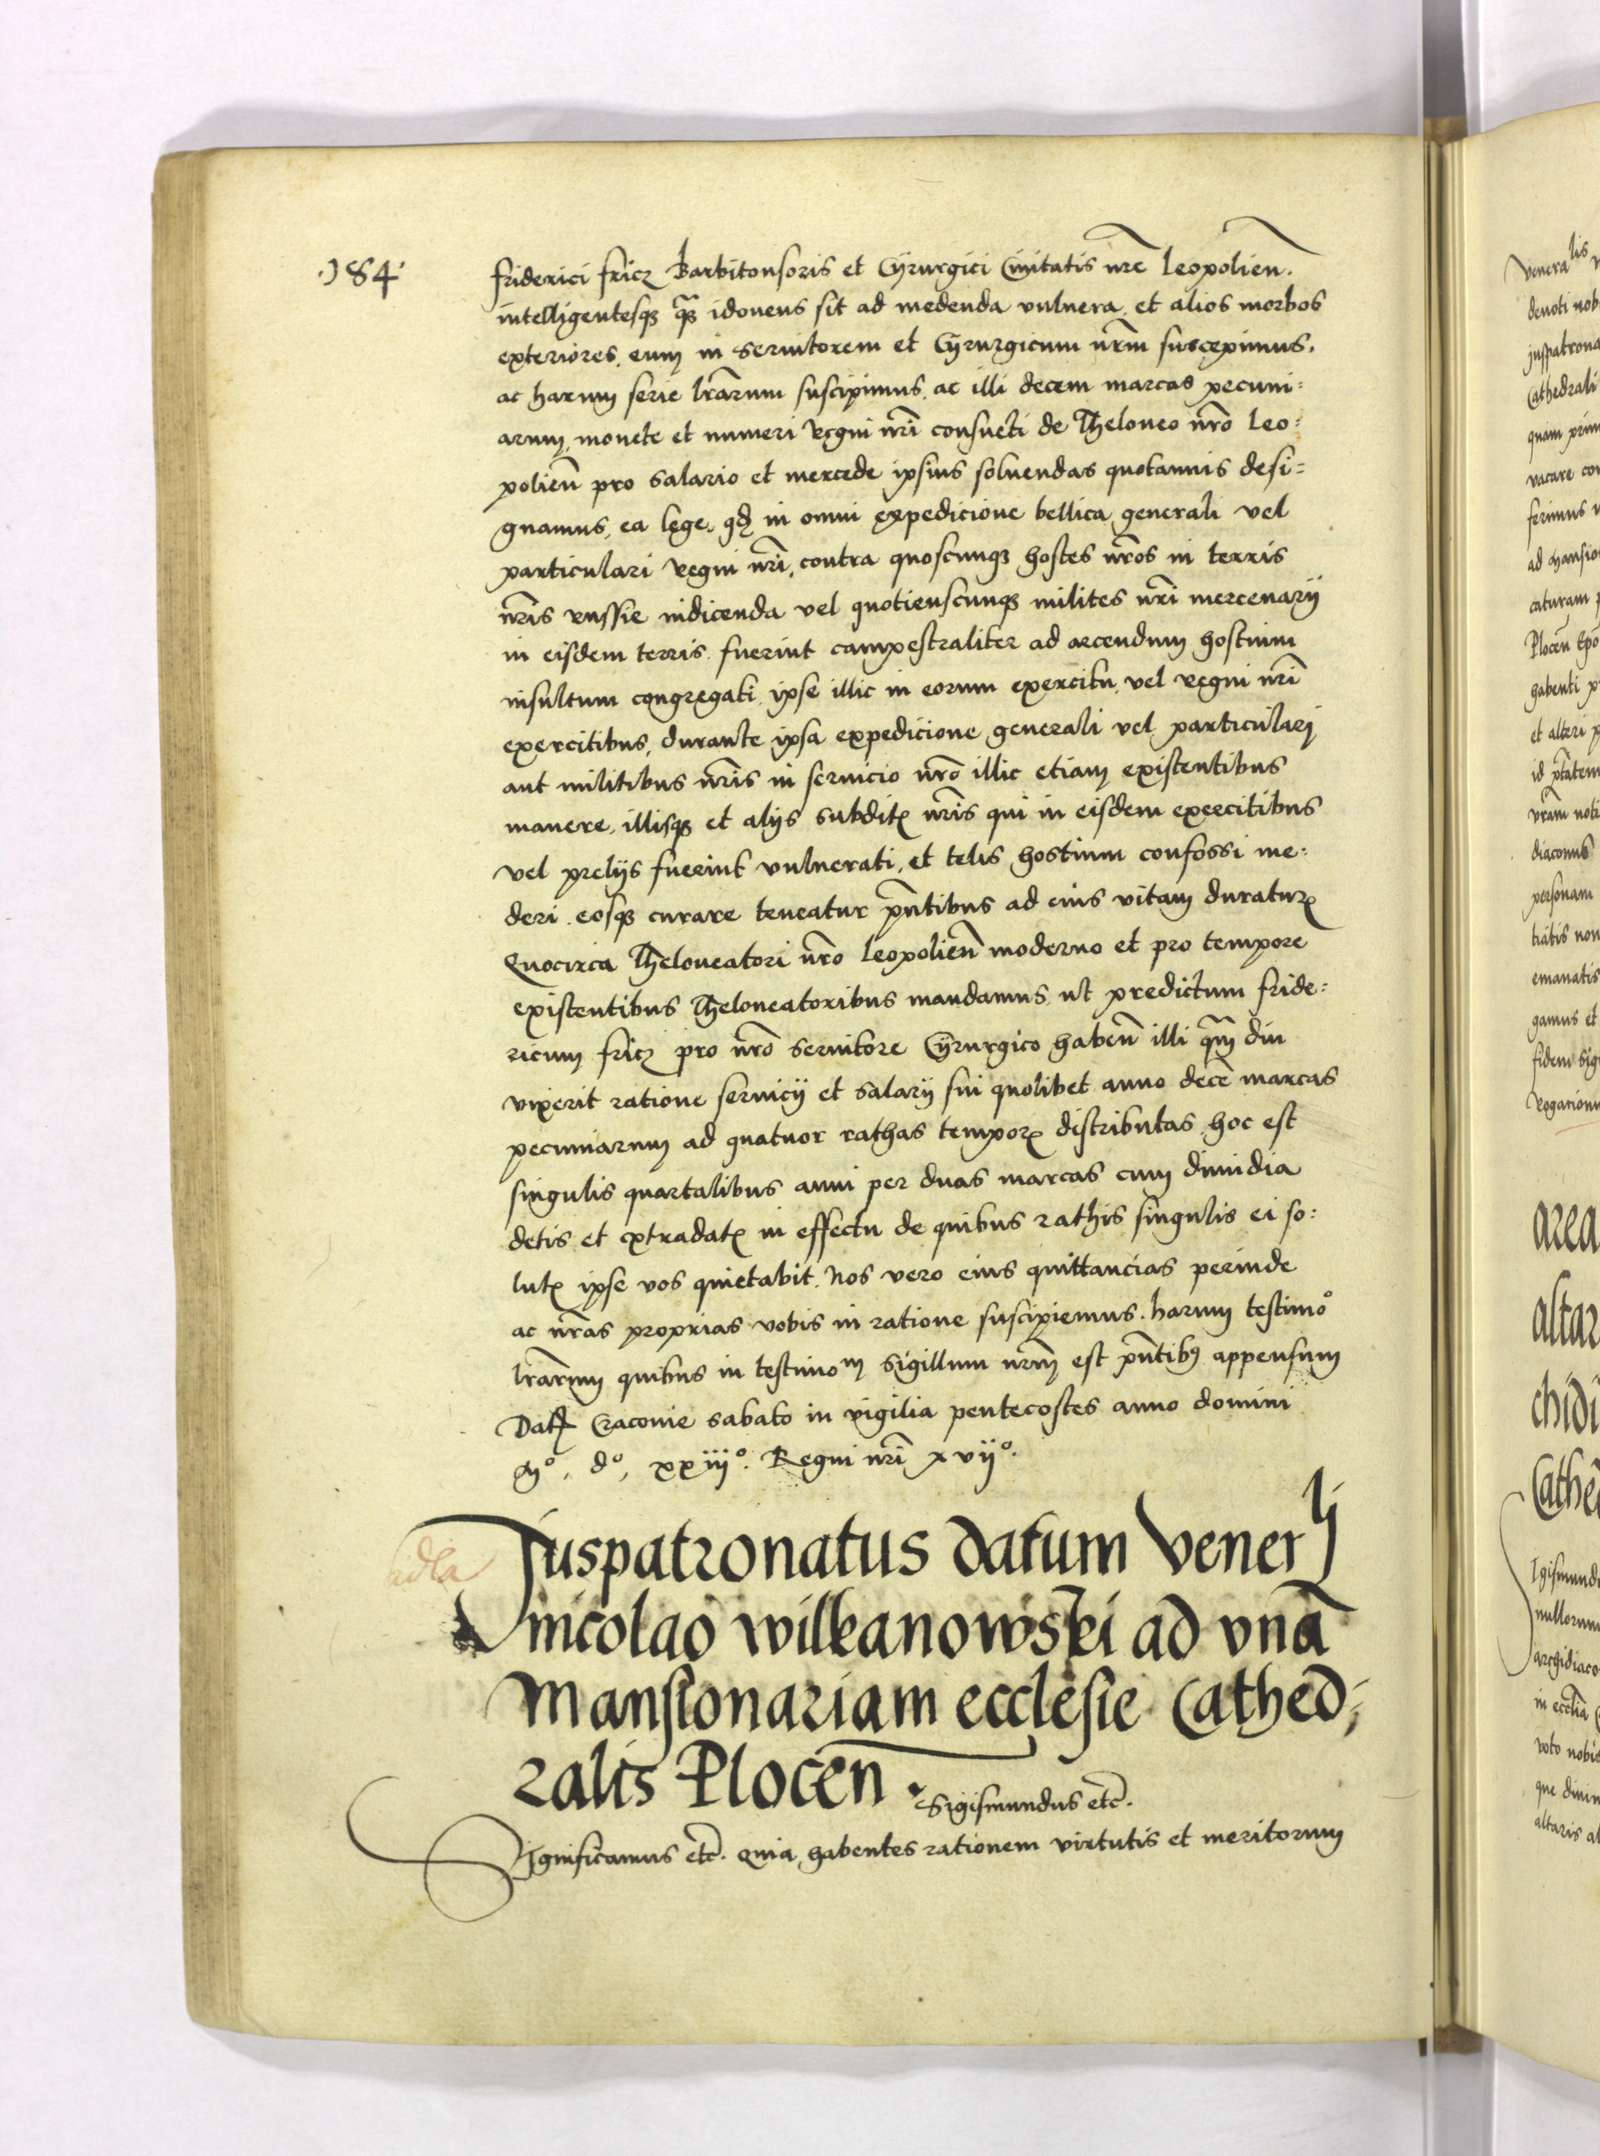 ·184·
friderici fricz Barbitonsoris et Cyrurgici Civitatis nr̃e Leopolien̄.
intelligentesqꝫ qꝫ idoneus sit ad medenda vulnera et alios morbos
exteriores, eum in servitorem et Cyrurgicum nr̃m suscepimus,
ac harum serie lr̃arum suscipimus, ac illi decem marcas pecuni=
arum, monete et numeri Regni nr̃i consueti de Theloneo nr̃o Leo=
polien̄ pro salario et mercede ipsius solvendas quotannis desi=
gnamus, ea lege, qđ in omni expedicione bellica generali vel
particulari Regni nr̃i, contra quoscunqꝫ hostes nr̃os in terris
nr̃is russie indicenda vel quotienscunqꝫ milites nr̃i mercenarij
in eisdem terris fuerint campestraliter ad arcendum hostium
insultum congregati, ipse illic in eorum exercitu, vel Regni nr̃i
exercitibus, durante ipsa expedicione generali vel particulari
aut militibus nr̃is in servicio nr̃o illic etiam existentibus
manere, illisqꝫ et alijs subditꝭ nr̃is qui in eisdem exercitibus
vel prelijs fuerint vulnerati, et telis hostium confossi me=
deri eosqꝫ curare teneatur pñtibus ad eius vitam duraturꝭ
Quocirca Theloneatori nr̃o Leopolien̄ moderno et pro tempore
existentibus Theloneatoribus mandamus, ut predictum fride=
ricum fricz pro nr̃o servitore Cyrurgico haben̄ illi qm̄ diu
vixerit ratione servicij et salarij sui quolibet anno decē marcas
pecuniarum ad quatuor rathas temporꝭ distributas, hoc est
singulis quartalibus anni per duas marcas cum dimidia
detis et extradatꝭ in effectu de quibus rathis singulis ei so=
lutꝭ ipse vos quietabit. Nos vero eius quittancias perinde
ac nr̃as proprias vobis in ratione suscipiemus. harum testimoº
lr̃arum quibus in testimoᵐ sigillum nr̃m est pñtibꝰ appensum
Datꝭ Cracovie sabato in vigilia pentecostes anno domini
Mº, dº, xxiijº. Regni nr̃i xvijº.
Juspatronatus datum Venerˡⁱ
nicolao wilkanowski ad vnā
Mansionariam ecclesie Cathed=
ralis Plocen̄.
Sigismundus etc̄.
Significamus etc̄. Quia habentes rationem virtutis et meritorum